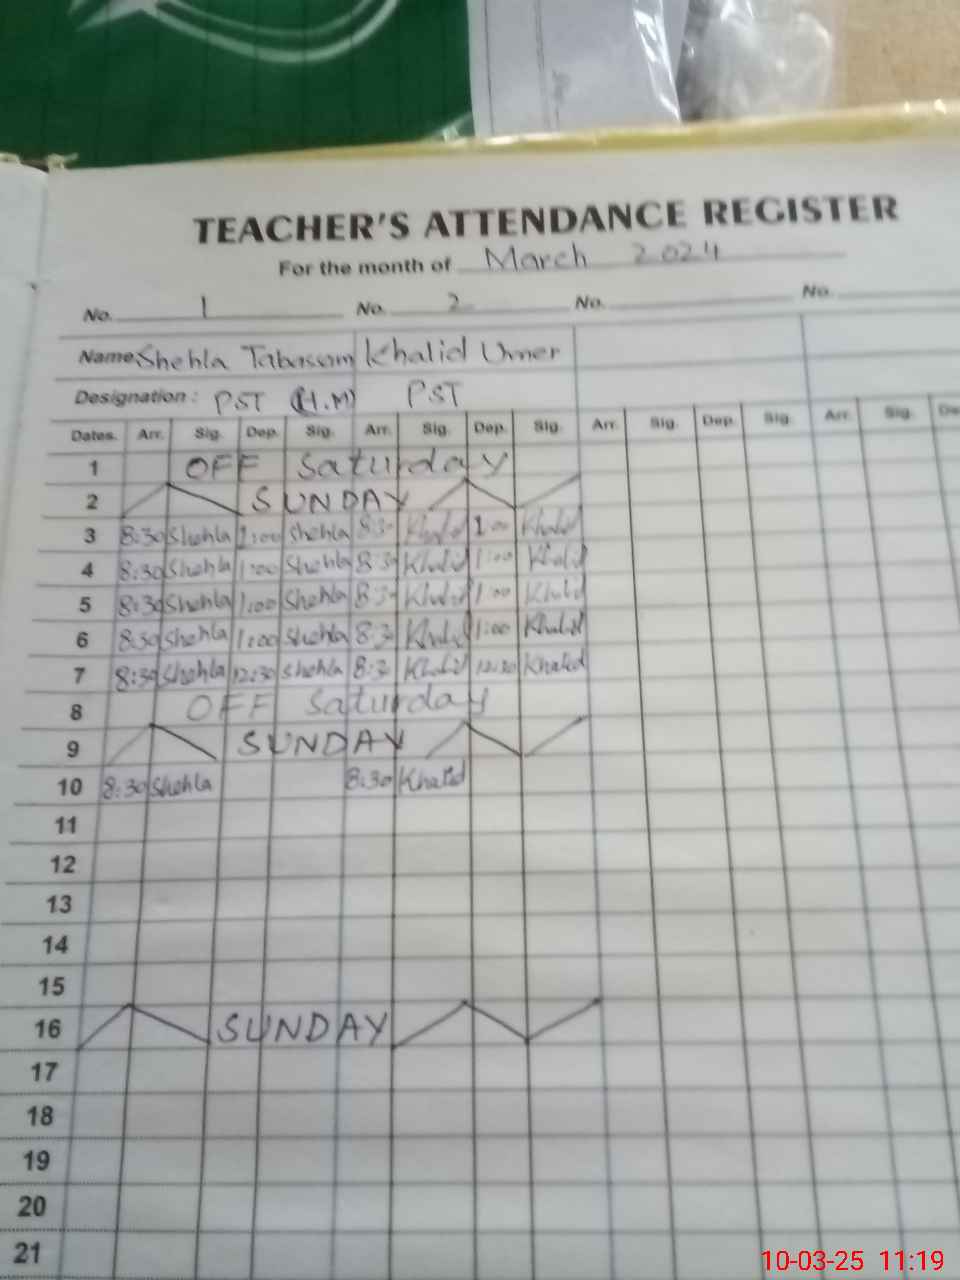 TEACHER'S ATTENDANCE REGISTER
For the month of March 2024
No. 1 No. 2 No. No.
Name Shehla Tabasam Khalid Umer
Designation : PST (H.M) PST
Dates. Arr. Sig. Dep. Sig. Arr. Sig. Dep. Sig. Arr. Sig. Dep. Sig. Arr. Sig. De
1 OFF Saturday
2 SUNDAY
3 8:30 Shehla 1:00 Shehla 8:30 Khalid 1:00 Khalid
4 8:30 Shehla 1:00 Shehla 8:30 Khalid 1:00 Khalid
5 8:30 Shehla 1:00 Shehla 8:30 Khalid 1:00 Khalid
6 8:30 Shehla 1:00 Shehla 8:30 Khalid 1:00 Khalid
7 8:30 Shehla 12:30 Shehla 8:30 Khalid 12:30 Khalid
8 OFF Saturday
9 SUNDAY
10 8:30 Shehla 8:30 Khalid
11
12
13
14
15
16 SUNDAY
17
18
19
20
21
10-03-25 11:19